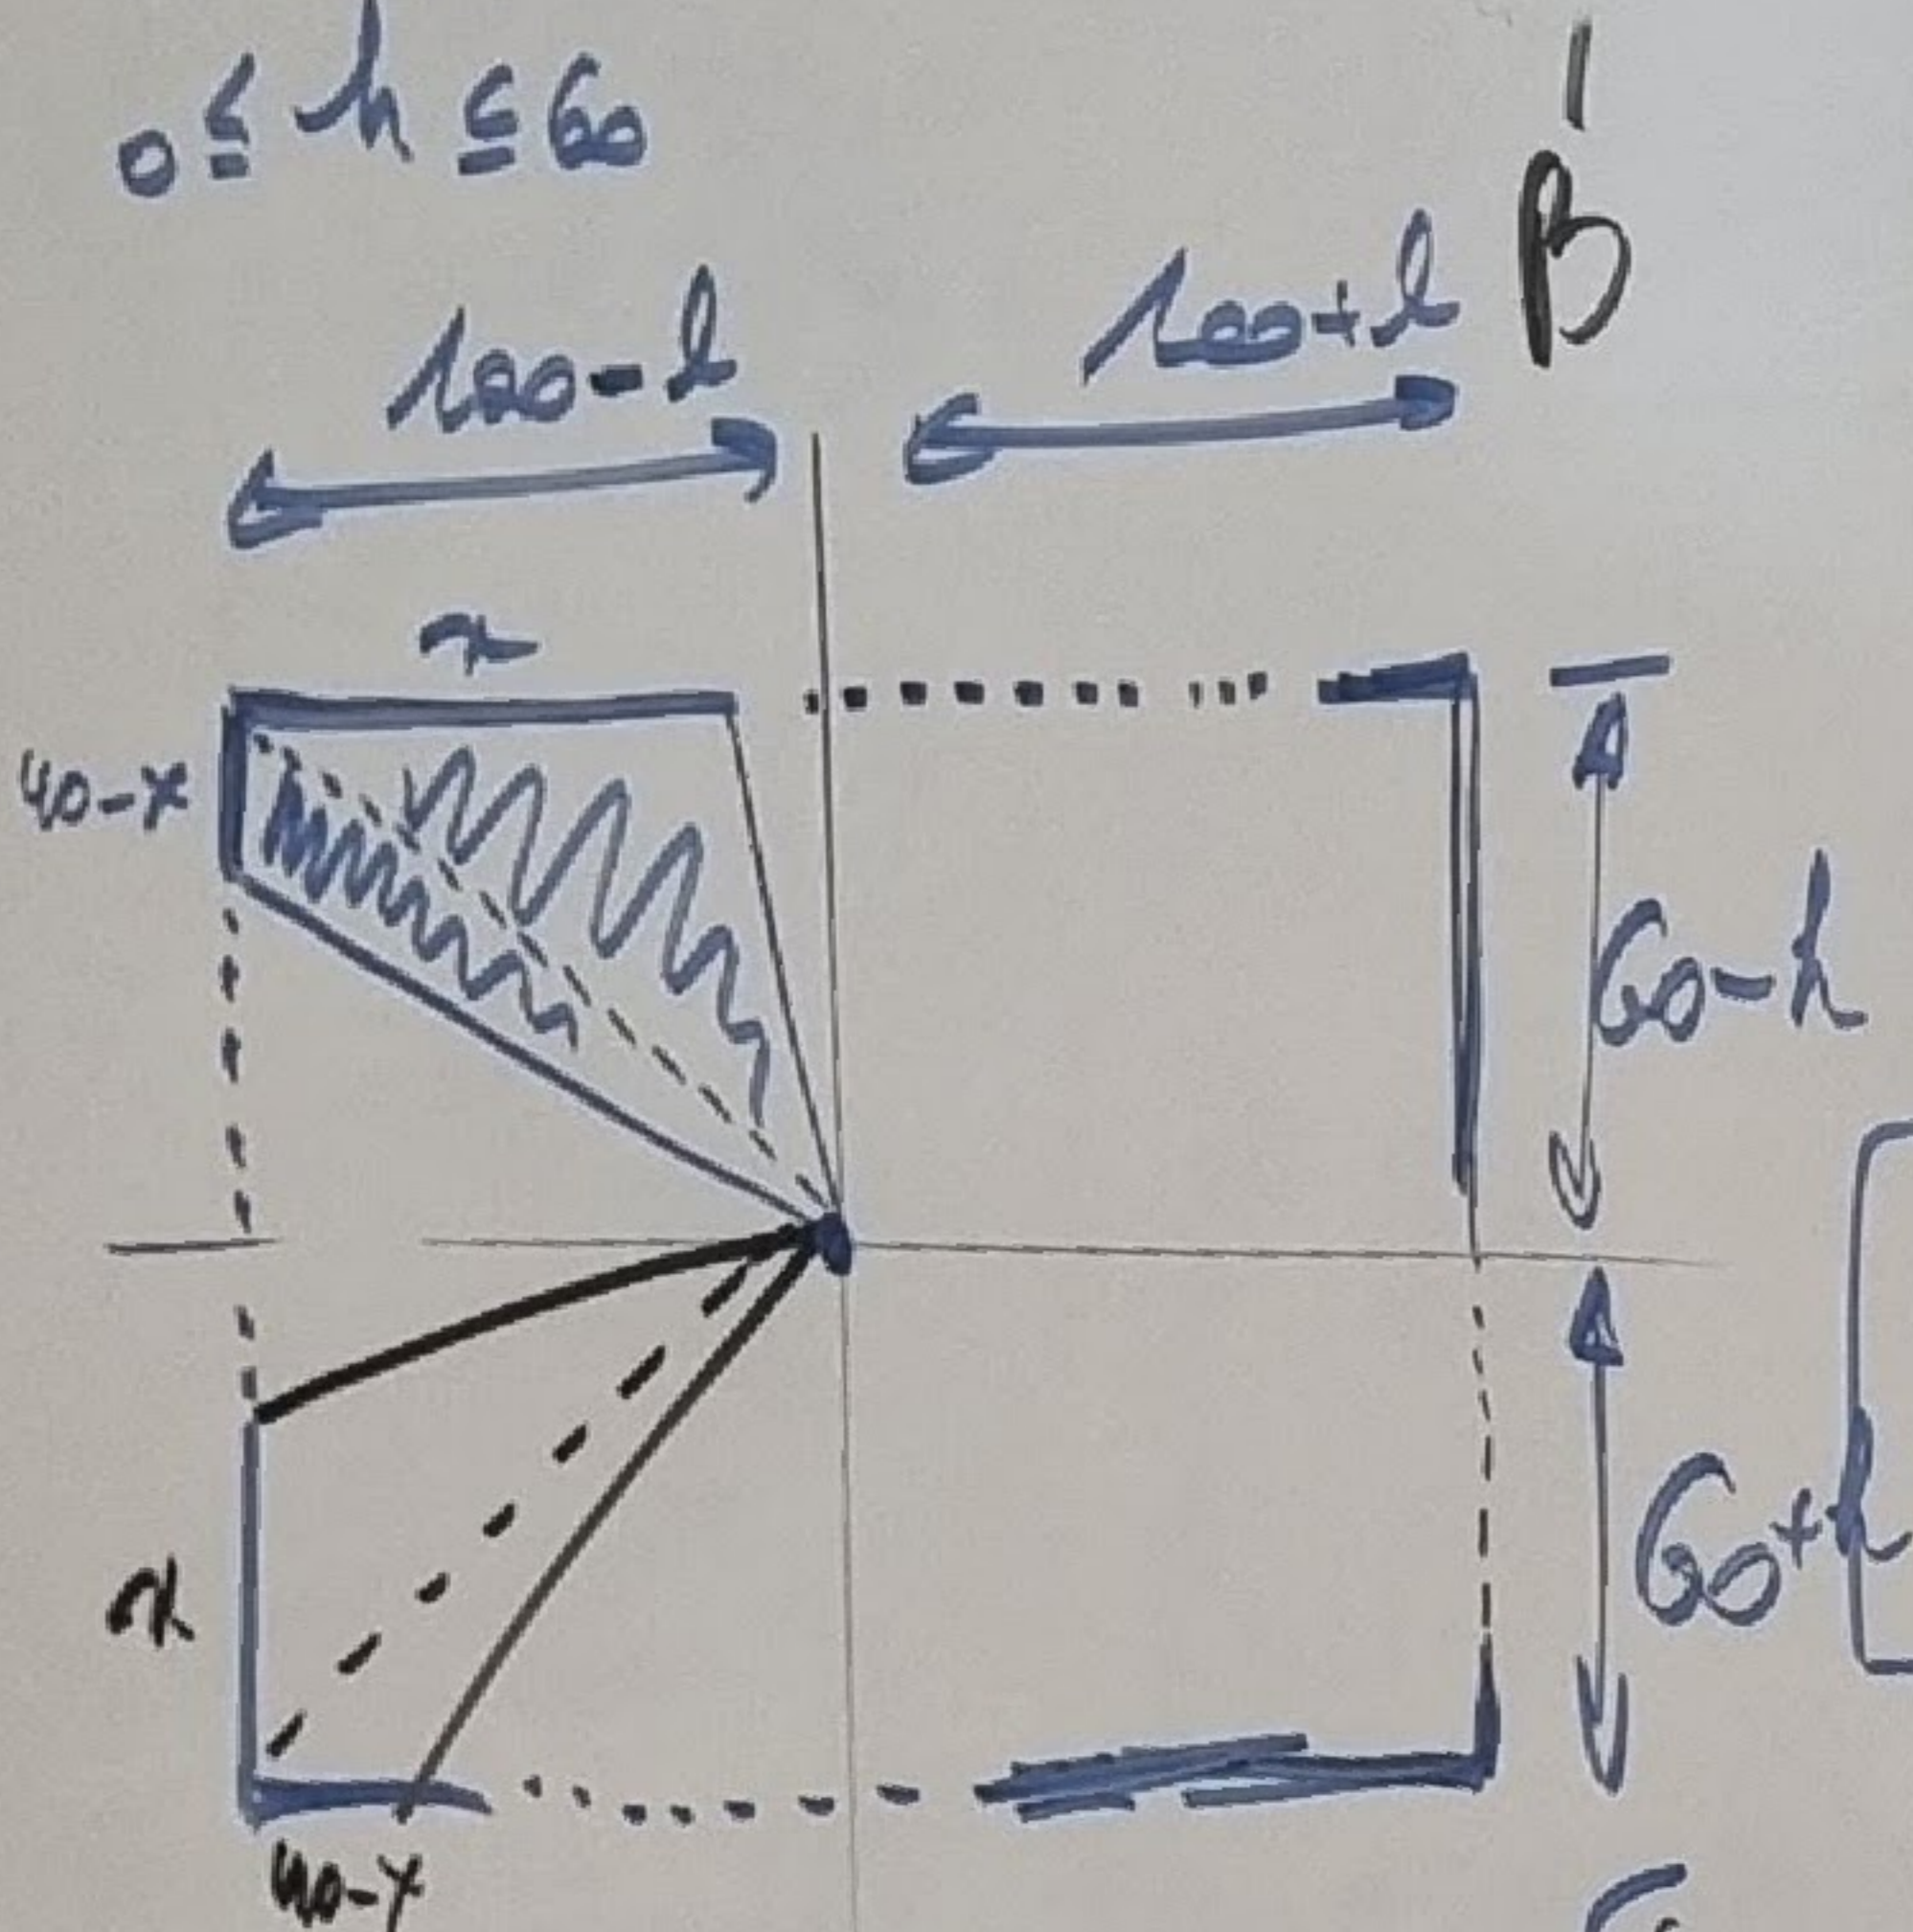 0 ≤ h ≤ 60
B
100-l
100+l
x
40-x
60-h
60+h
x
40-x